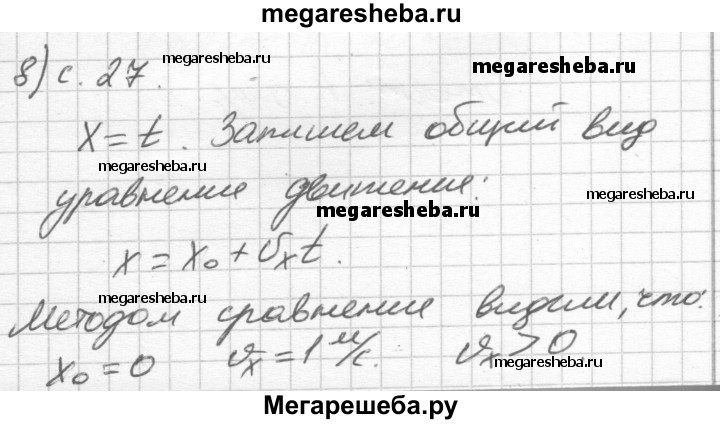 megaresheba.ru
8) с. 27. megaresheba.ru
megaresheba.ru
x = t. Запишем общий вид
megaresheba.ru
уравнение движения:
megaresheba.ru
megaresheba.ru
x = x₀ + υₓt.
megaresheba.ru
Методом сравнение видим, что:
x₀ = 0 υₓ = 1 м/с. υₓ > 0
megaresheba.ru
Мегарешеба.ру